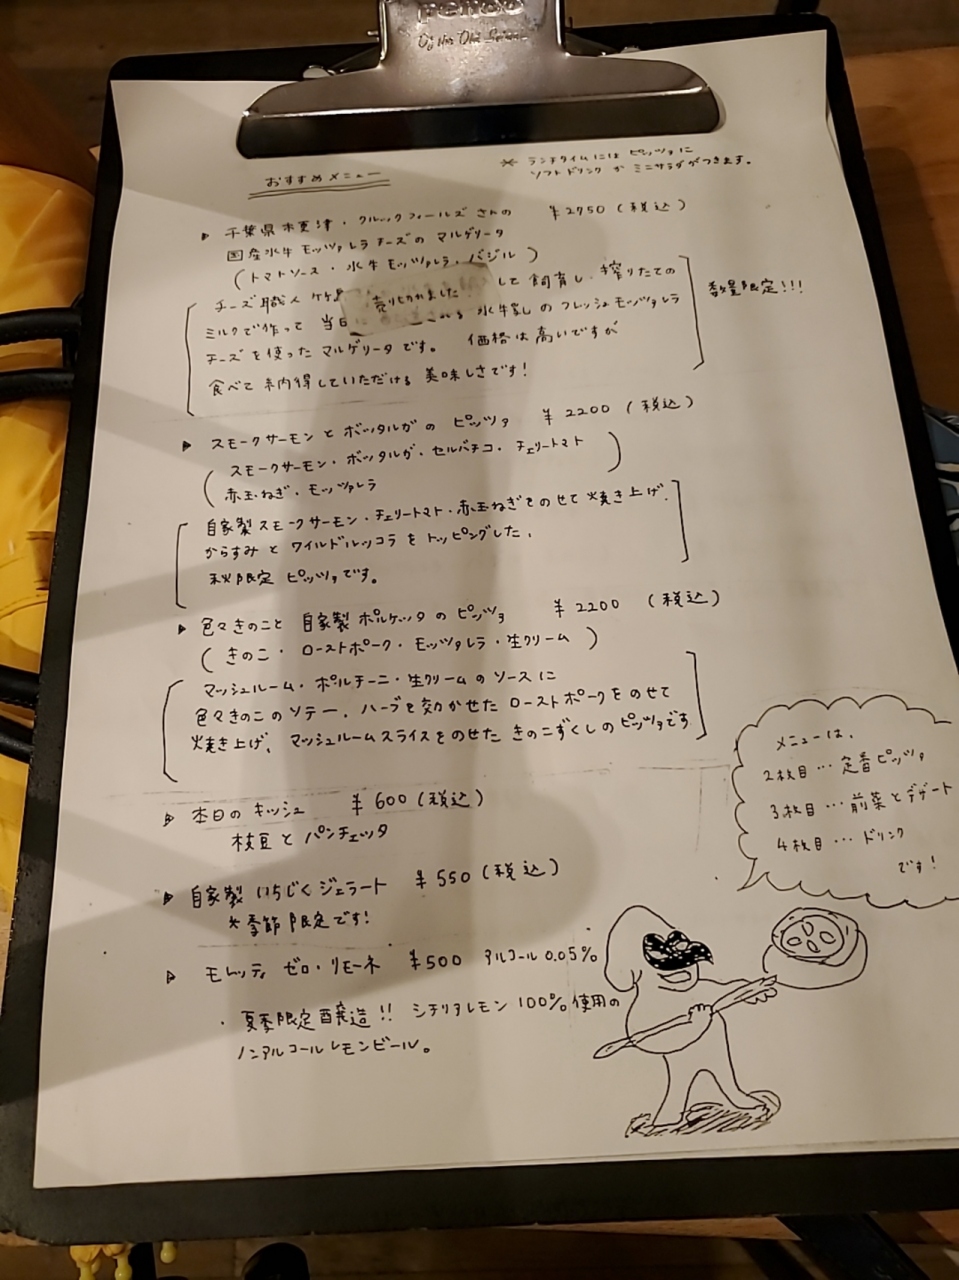 おすすめメニュー
※ ランチタイムには ピッツァに
ソフトドリンク か ミニサラダがつきます。
▷ 千葉県木更津・クルックフィールズさんの ¥2750(税込)
国産水牛モッツァレラチーズの マルゲリータ
(トマトソース・水牛モッツァレラ・バジル)
チーズ職人 竹 売り切れました して飼育し、搾りたての
ミルクで作って 当日 される 水牛乳の フレッシュモッツァレラ
チーズを使った マルゲリータです。 価格は高いですが
食べて納得していただける 美味しさです!
数量限定!!!
▷ スモークサーモンと ボッタルガの ピッツァ ¥2200(税込)
(スモークサーモン・ボッタルガ・セルバチコ・チェリートマト
赤玉ねぎ・モッツァレラ)
自家製スモークサーモン・チェリートマト・赤玉ねぎをのせて 焼き上げ、
からすみと ワイルドルッコラを トッピングした、
秋限定 ピッツァです。
▷ 色々きのこと 自家製ポルケッタの ピッツァ ¥2200 (税込)
(きのこ・ローストポーク・モッツァレラ・生クリーム)
マッシュルーム・ポルチーニ・生クリームの ソースに
色々きのこのソテー、ハーブを効かせた ローストポークをのせて
焼き上げ、マッシュルームスライスをのせた きのこずくしのピッツァです
▷ 本日の キッシュ ¥600(税込)
枝豆と パンチェッタ
▷ 自家製 いちじくジェラート ¥550(税込)
※季節限定です!
▷ モレッティ ゼロ・リモーネ ¥500 アルコール0.05%
・夏季限定醸造!! シチリアレモン 100%使用の
ノンアルコールレモンビール。
メニューは、
2枚目…定番ピッツァ
3枚目…前菜とデザート
4枚目…ドリンク
です!